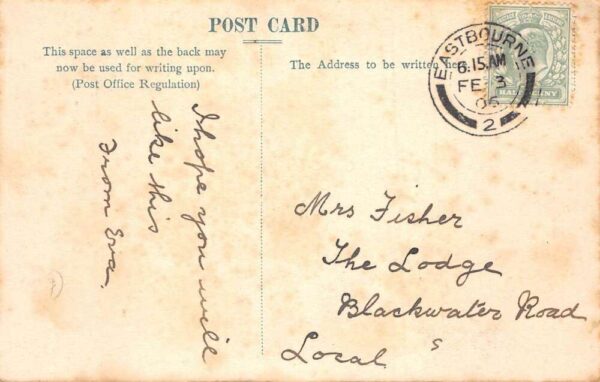 POST CARD
This space as well as the back may
now be used for writing upon.
(Post Office Regulation)
The Address to be written he
EASTBOURNE
6.15.AM
FE 3
06
2
HALFPENNY
I hope you will
like this
From Eva.
Mrs Fisher
The Lodge
Blackwater Road
Local